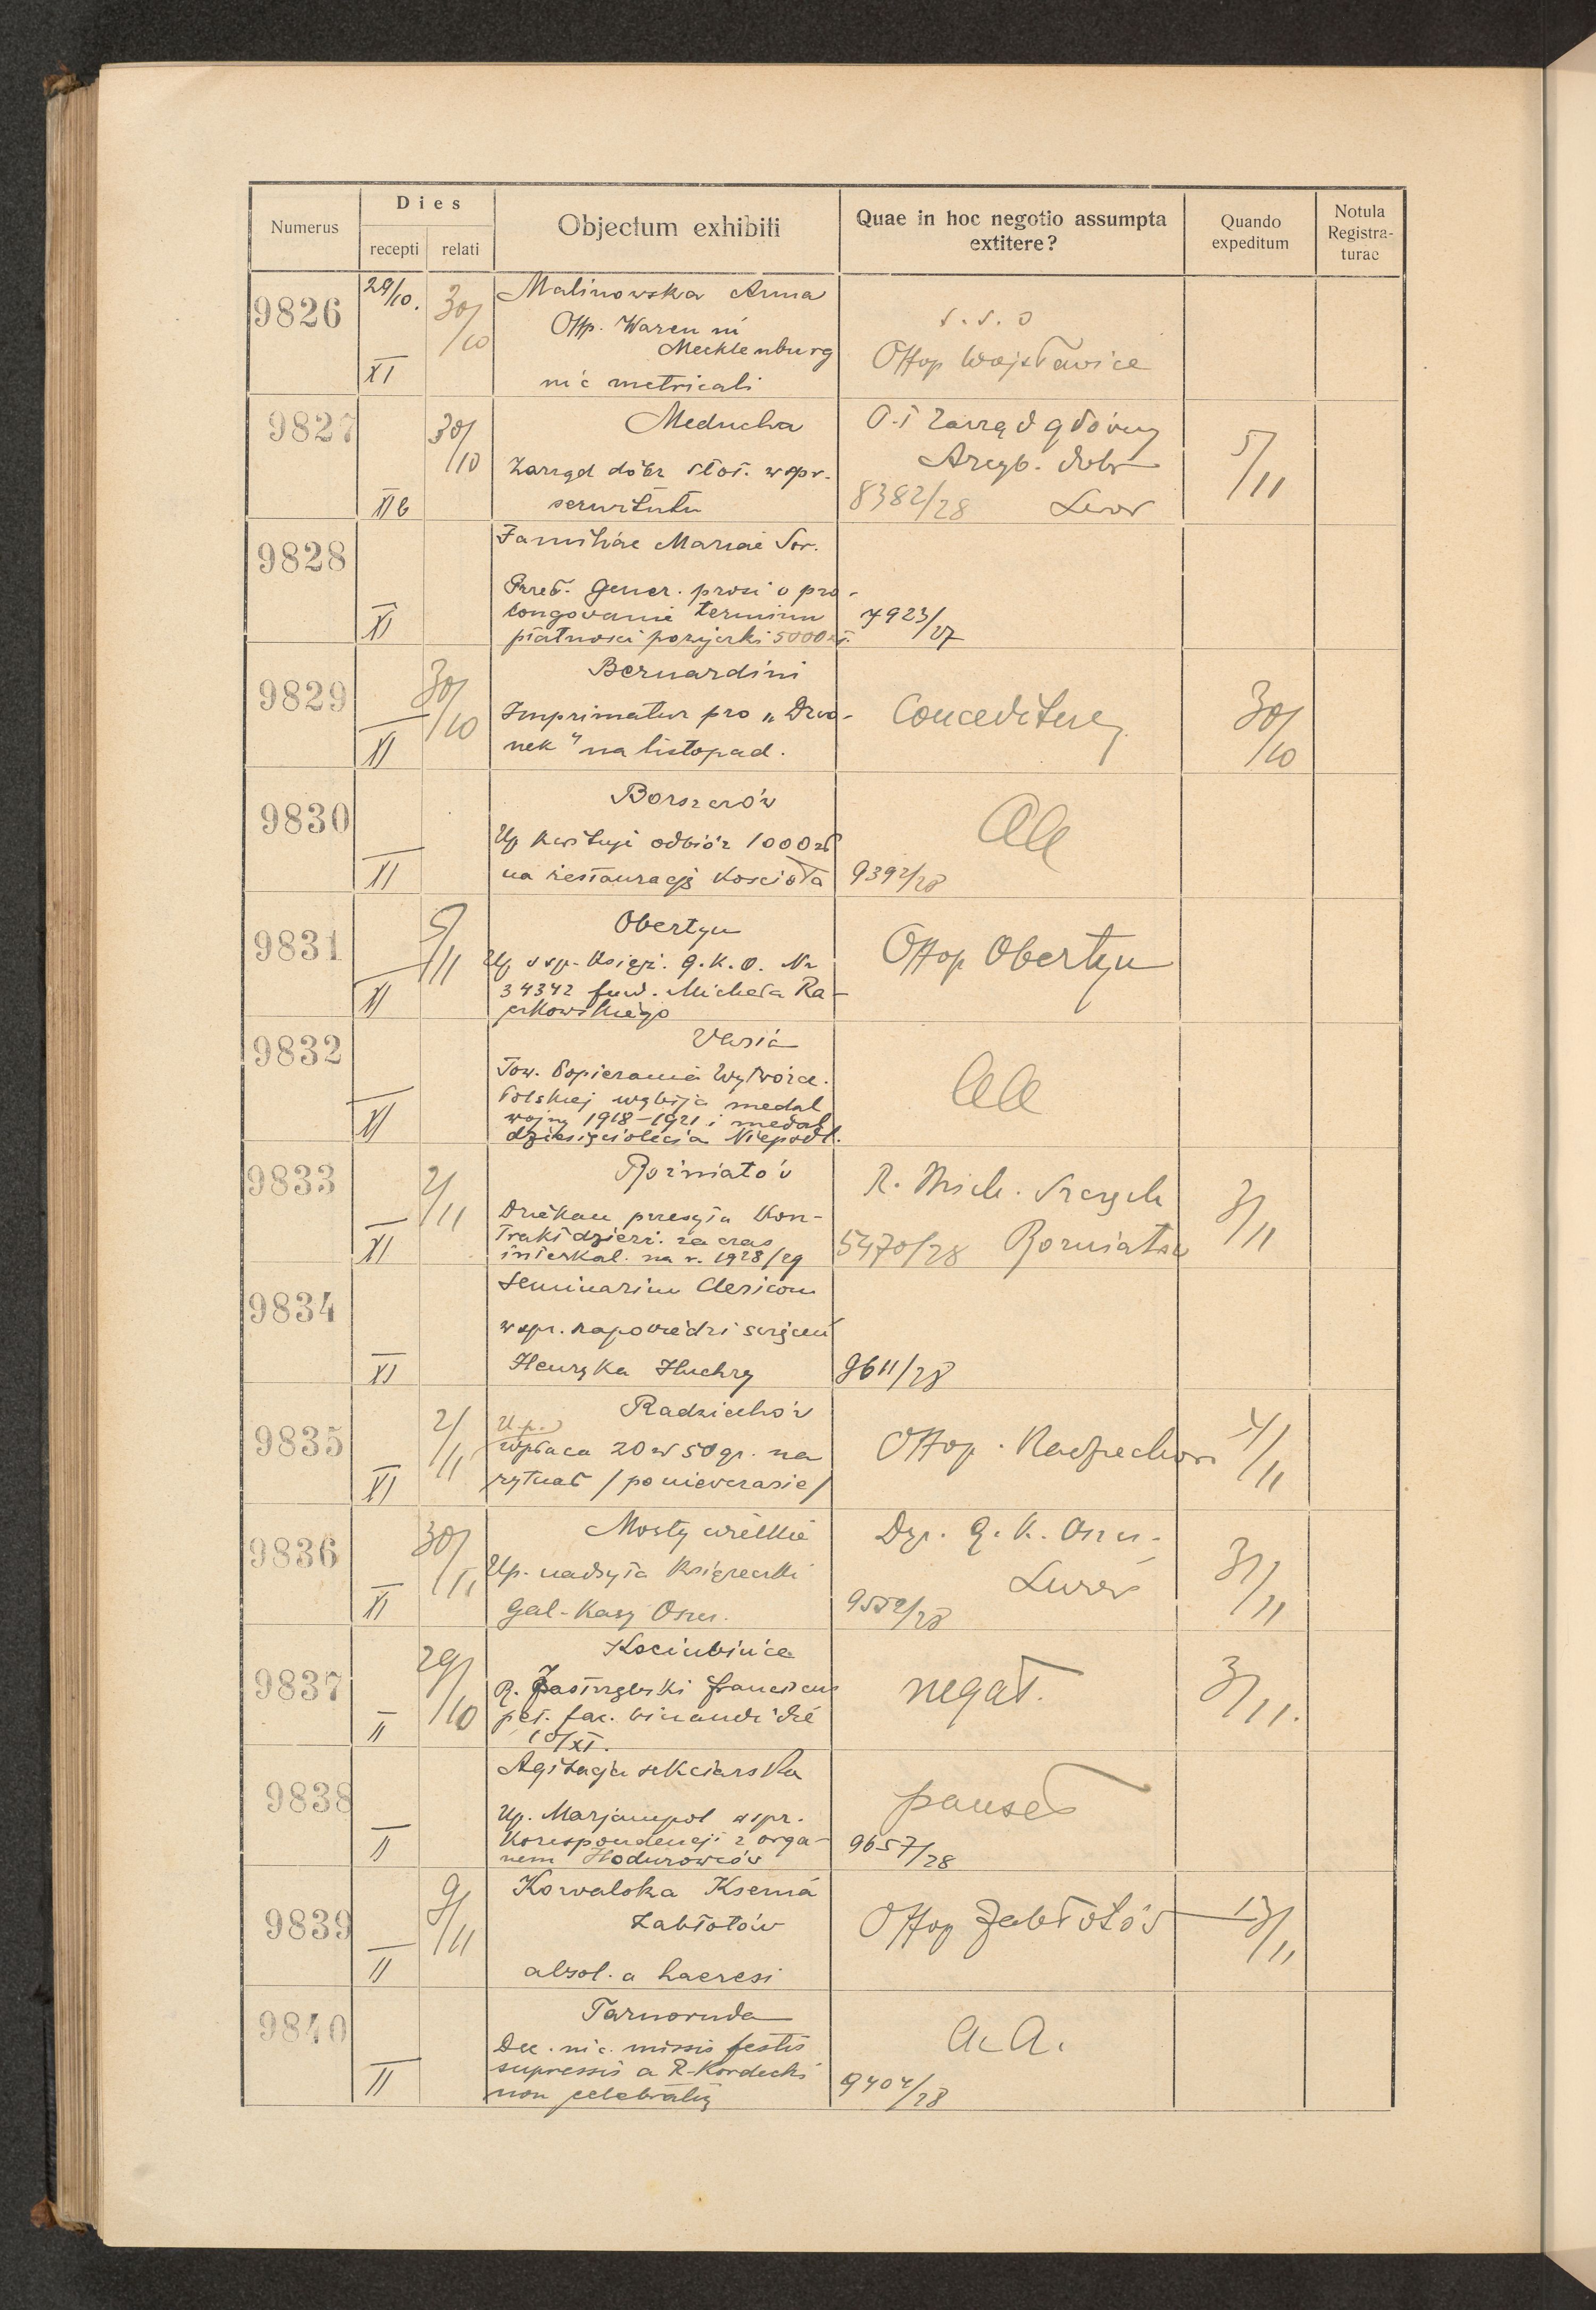 Numerus
Dies
recepti
relati
Objectum exhibiti
Quae in hoc negotio assumpta
extitere?
Quando
expeditum
Notula
Registra-
turae
9826
29/10.
XI
30/10
Malinowska Anna
Offp. Waren in
Mecklenburg
nić metricali
s. s. o
Offop Wojsławice
9827
XI b
30/10
Meducha
Zarząd dóbr stoł. w spr.
serwitutu
O. Ł Zarząd główny
Arcyb. dóbr
8382/28 Lwow
5/11
9828
XI
Familiae Mariae Sor.
Przeł. Gener. prosi o pro-
longowanie terminu
płatności pożyczki 5000 zł.
7923/27
9829
XI
30/10
Bernardini
Imprimatur pro „Dzwo-
nek" na listopad.
Conceditur
30/10
9830
XI
Borszczów
Up kwituje odbiór 1000 zł
na restaurację kościoła
9392/28
9831
XI
5/11
Obertyn
Up w sp. książ. G. K. O. Nr
34342 fund. Michała Ra-
Offop Obertyn
9832
XI
Varia
Tow. Popierania Wytwórcz.
Polskiej wybija medal
wojny 1918-1921 i medal
dziesięciolecia Niepodl.
9833
XI
2/11
Rożniatów
Dziekan przesyła Kon-
trakt dzierż. za czas
interkal. na r. 1928/29
R. Mich.
5470/28 Rozniatow
3/11
9834
XI
Seminarium Clericorum
w spr. zapowiedzi święceń
Henryka Huchry
9611/28
9835
XI
2/11
Radziechów
U.p.
wpłaca 20 zł 50 gr. na
rytuał / poniewczasie /
Offop. Radziechow
4/11
9836
XI
30/11
Mosty wielkie
Up. nadsyła książeczki
Gal-Kasy Oszcz.
Dyr. G. K. Oszcz.
Lwów
9552/28
3/11
9837
II
29/10
Kociubińce
R. Franciscus
pet. fac. binandi die
10/XI.
negat.
3/11.
9838
II
Agitacja sekciarska
Up. Marjampol w spr.
korespondencji z orga-
nem Hodurowców
9657/28
9839
II
9/11
Kowalska Ksenia
Zabłotów
absol. a haeresi
Offop Zabłotów
13/11
9840
II
Tarnoruda
Dec. nić. missis festis
supressis a R. Kordecki
non celebratis
a. a.
9404/28